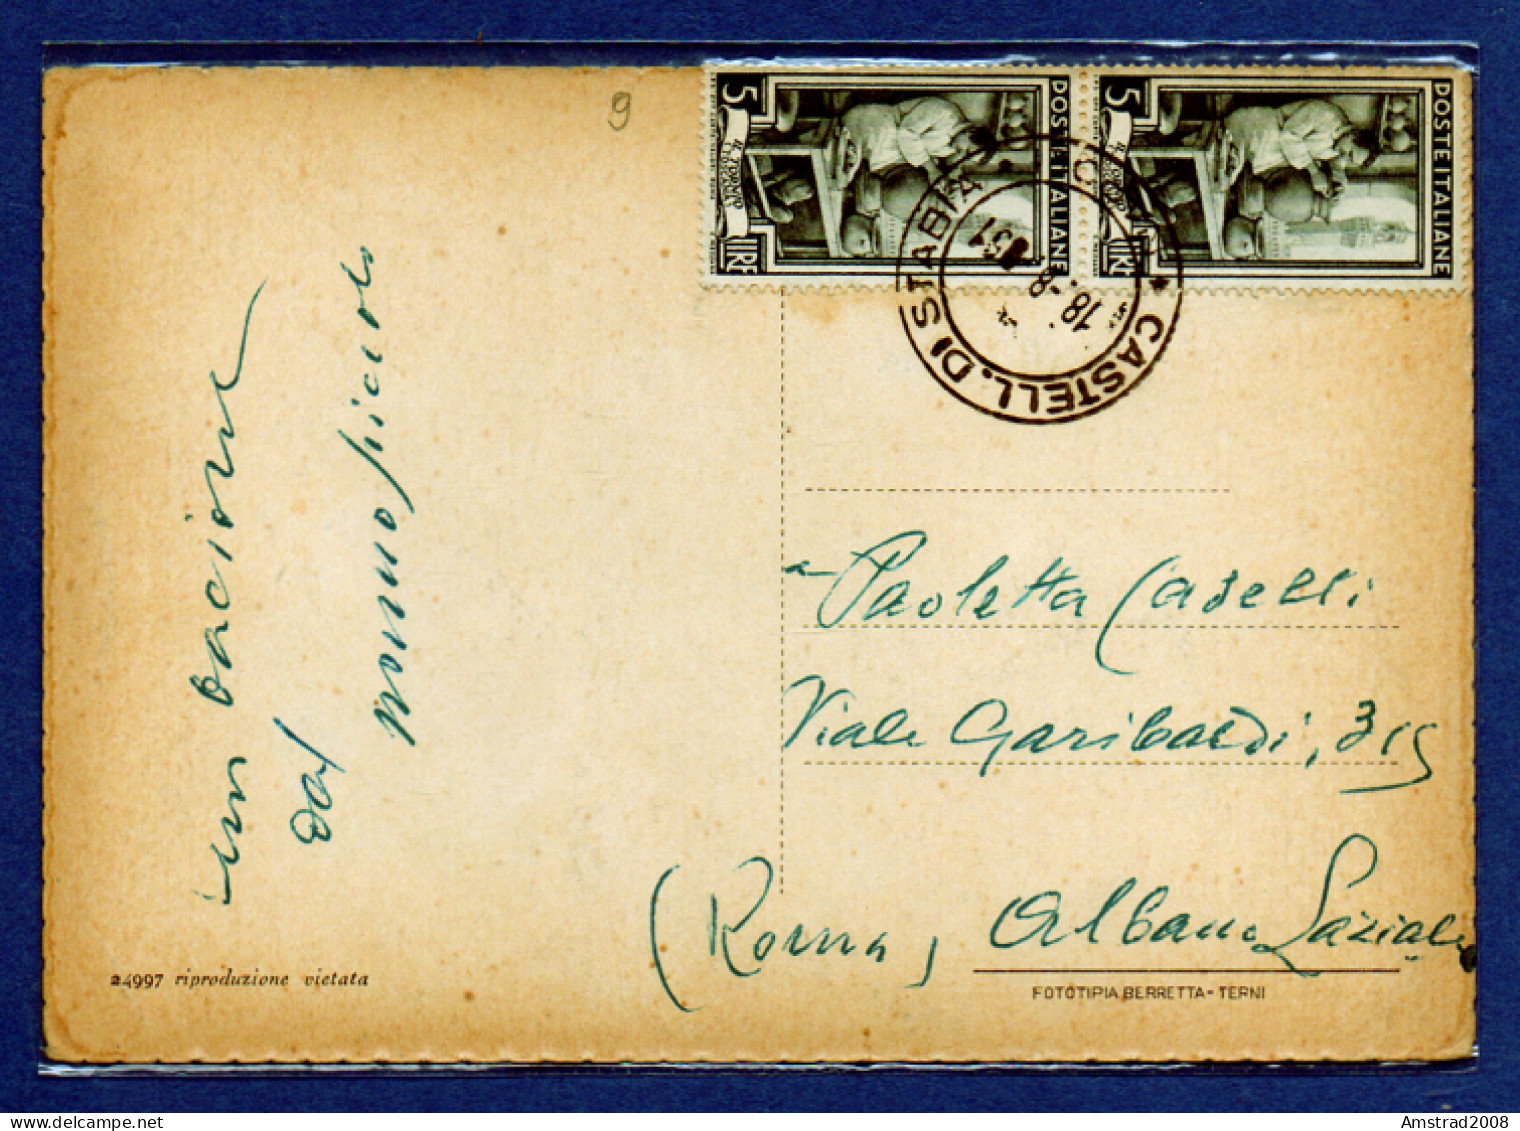 9
5 POSTE ITALIANE LIRE
5 POSTE ITALIANE LIRE
* CASTELL. DI STABIA
18.-8 51
un bacione
dal
nonno
a Paoletta Caselli
Viale Garibaldi, 315
Albano Laziale
(Roma)
24997 riproduzione vietata
FOTOTIPIA BERRETTA - TERNI
Amstrad2008